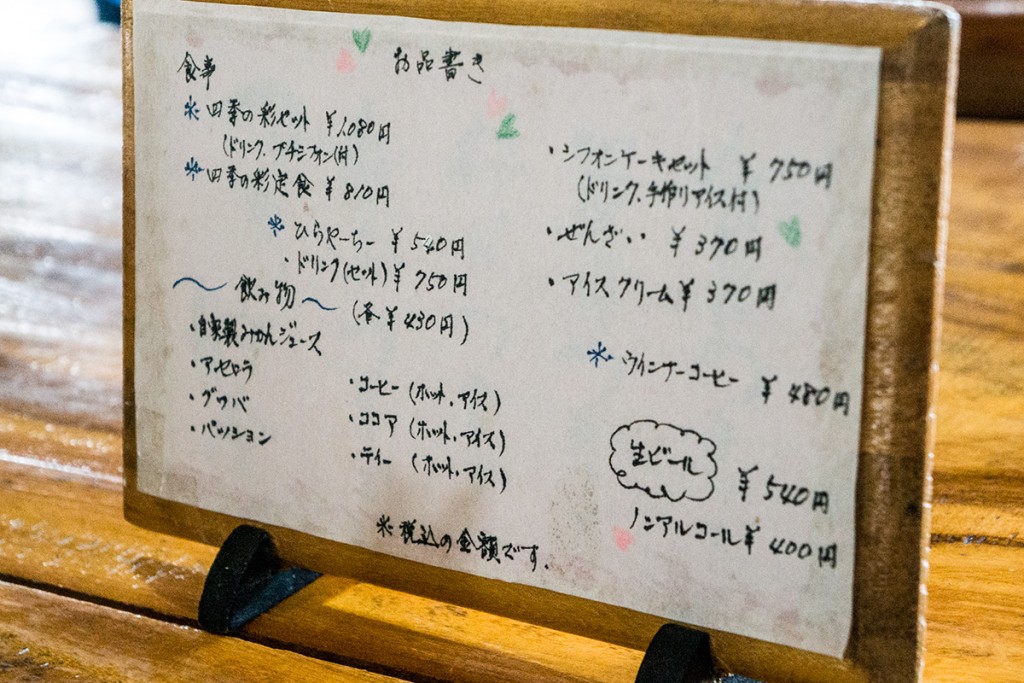 お品書き
食事
* 四季の彩セット ¥1,080円
(ドリンク、プチシフォン付)
* 四季の彩定食 ¥810円
* ひらやーちー ¥540円
・ドリンク(セット) ¥750円
〜飲み物〜 (各¥430円)
・自家製みかんジュース
・アセロラ
・グァバ
・パッション
・コーヒー (ホット、アイス)
・ココア (ホット、アイス)
・ティー (ホット、アイス)
・シフォンケーキセット ¥750円
(ドリンク、手作りアイス付)
・ぜんざい ¥370円
・アイスクリーム ¥370円
* ウインナーコーヒー ¥480円
生ビール ¥540円
ノンアルコール ¥400円
※税込の金額です.